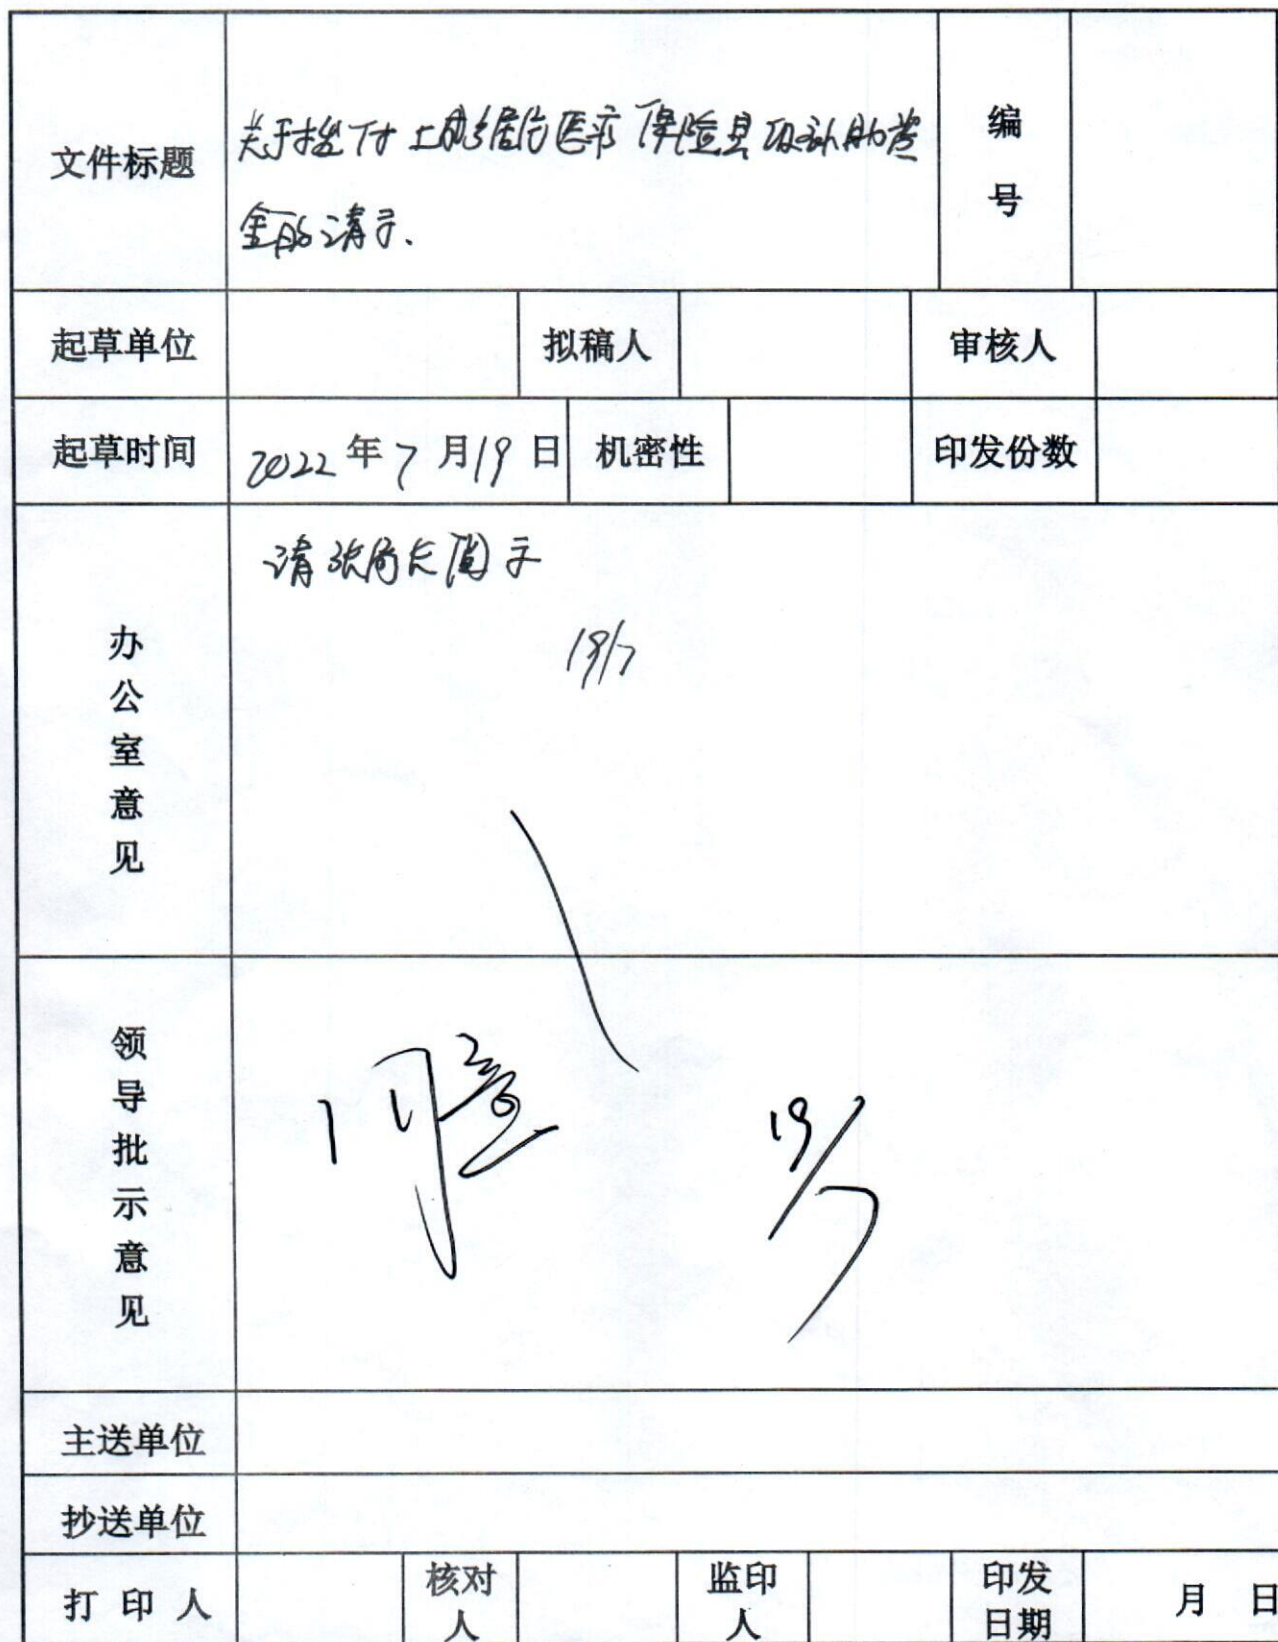 文件标题
关于拨付城乡居民医疗保险县级补助资
金的请示.
编
号
起草单位 拟稿人 审核人
起草时间 2022年7月19日 机密性 印发份数
办
公
室
意
见
请张局长阅示
19/7
领
导
批
示
意
见
同意
19/7
主送单位
抄送单位
打印人 核对
人 监印
人 印发
日期 月 日